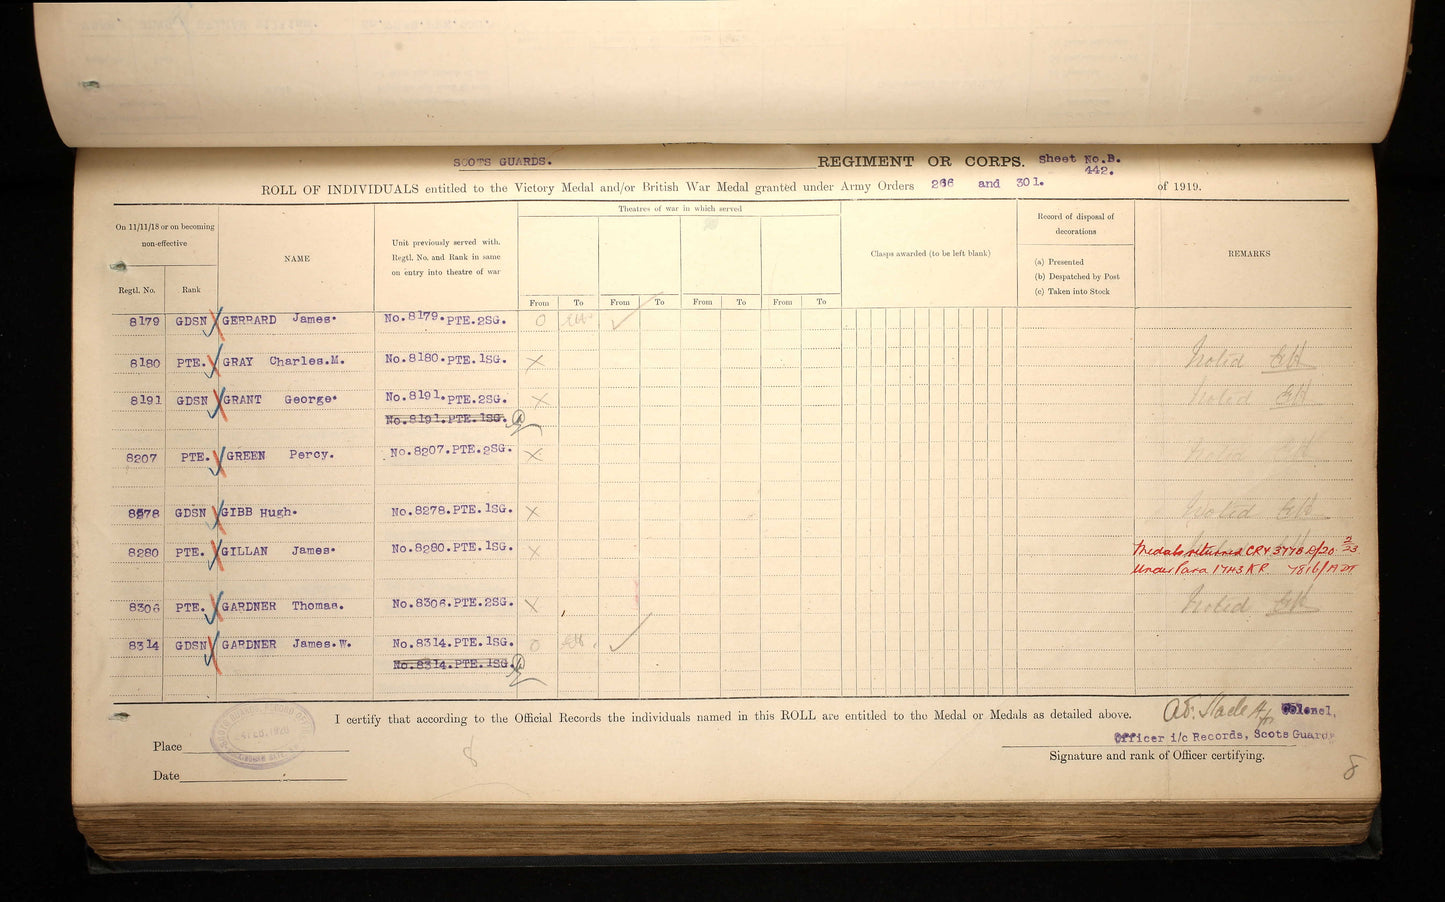 SCOTS GUARDS. REGIMENT OR CORPS. Sheet No.B.
442.
ROLL OF INDIVIDUALS entitled to the Victory Medal and/or British War Medal granted under Army Orders 266 and 301. of 1919.
On 11/11/18 or on becoming non-effective
Regtl. No. Rank
NAME
Unit previously served with. Regtl. No. and Rank in same on entry into theatre of war
Theatres of war in which served
From To From To From To From To
Clasps awarded (to be left blank)
Record of disposal of decorations
(a) Presented
(b) Despatched by Post
(c) Taken into Stock
REMARKS
8179 GDSN GERRARD James. No.8179.PTE.2SG. O
8180 PTE. GRAY Charles.M. No.8180.PTE.1SG. X Noted
8191 GDSN GRANT George. No.8191.PTE.2SG. X Noted
No.8191.PTE.1SG.
8207 PTE. GREEN Percy. No.8207.PTE.2SG. X Noted
8278 GDSN GIBB Hugh. No.8278.PTE.1SG. X Noted
8280 PTE. GILLAN James. No.8280.PTE.1SG. X Medals returned CRV 377B D/20 2/23
Under Para 1743 KR 7816/
8306 PTE. GARDNER Thomas. No.8306.PTE.2SG. X Noted
8314 GDSN GARDNER James.W. No.8314.PTE.1SG. O
No.8314.PTE.1SG.
I certify that according to the Official Records the individuals named in this ROLL are entitled to the Medal or Medals as detailed above.
Colonel,
Officer i/c Records, Scots Guards
Signature and rank of Officer certifying.
SCOTS GUARDS RECORD OFFICE
FEB. 1920
Place
Date
8
8